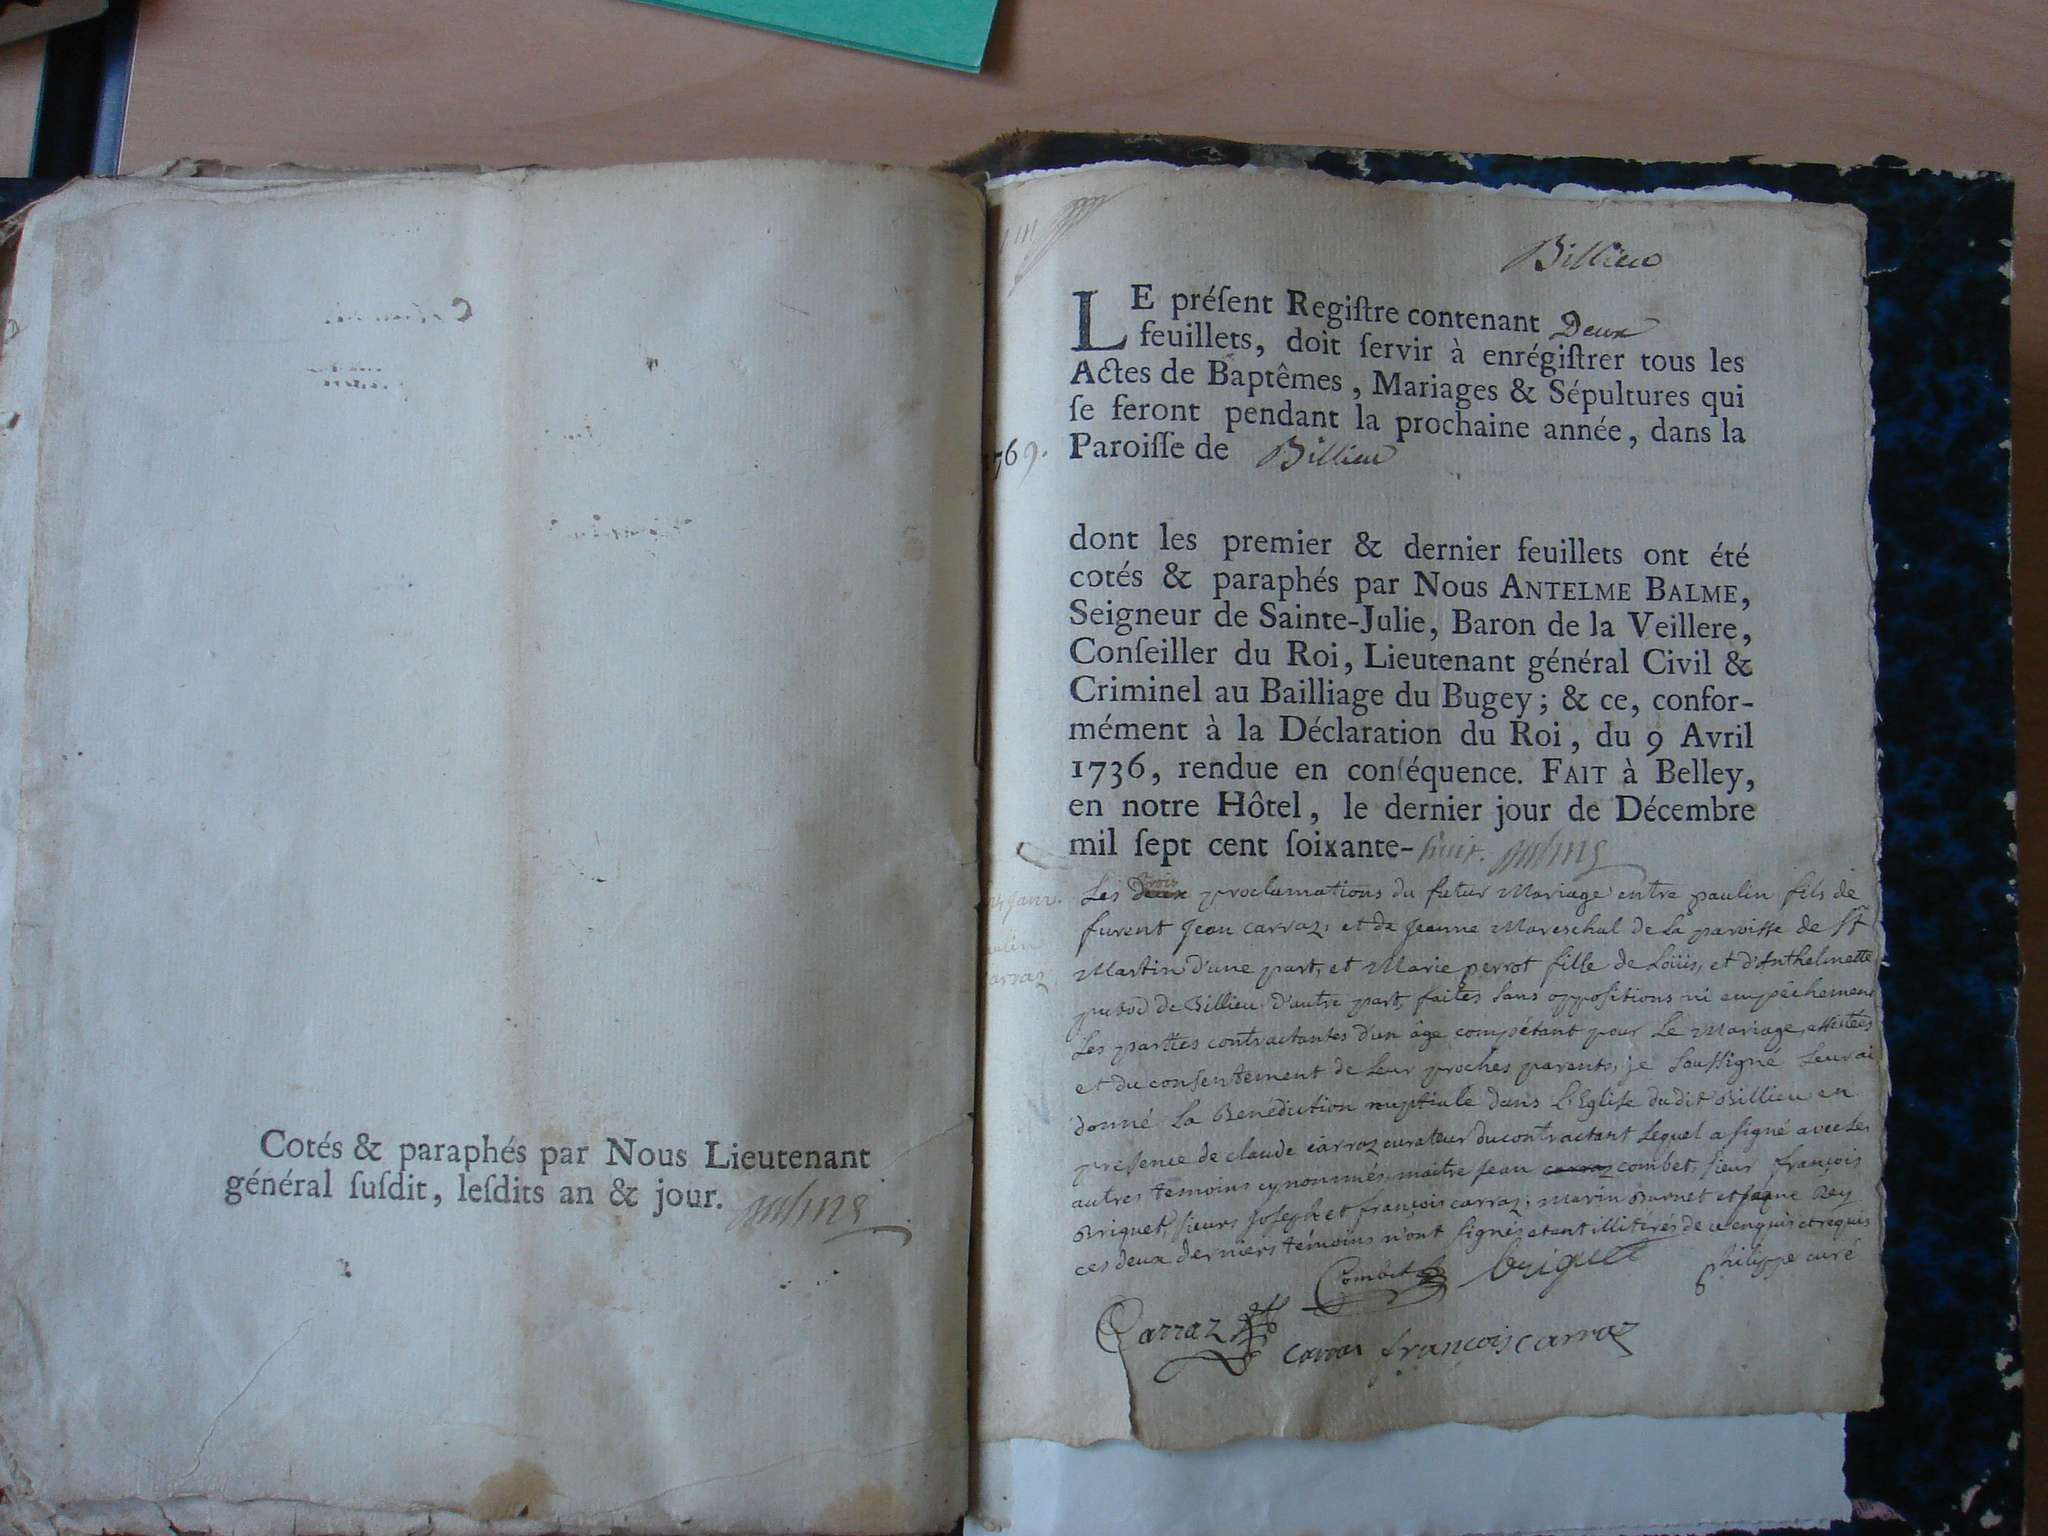 Cotés & paraphés par Nous Lieutenant
général susdit, lesdits an & jour.
Billieu
LE préſent Regiſtre contenant Deux
feuillets, doit ſervir à enrégiſtrer tous les
Actes de Baptêmes, Mariages & Sépultures qui
ſe feront pendant la prochaine année, dans la
1769. Paroiſſe de Billieu
dont les premier & dernier feuillets ont été
cotés & paraphés par Nous ANTELME BALME,
Seigneur de Sainte-Julie, Baron de la Veillere,
Conſeiller du Roi, Lieutenant général Civil &
Criminel au Bailliage du Bugey; & ce, confor-
mément à la Déclaration du Roi, du 9 Avril
1736, rendue en conſéquence. FAIT à Belley,
en notre Hôtel, le dernier jour de Décembre
mil ſept cent ſoixante-huit.
Les trois proclamations du futur Mariage entre paulin fils de
furent Jean carraz, et de Jeanne Mareschal de la paroisse de St
Martin d'une part, et Marie perrot fille de Loüis, et d'Anthelmette
de Billieu d'autre part, faites sans oppositions ni empêchement
Les parties contractantes d'un âge compétant pour le Mariage, assistées
et du consentement de leur proches parents, je soussigné leur ai
donné la Benédiction nuptiale dans l'Eglise dudit Billieu en
presence de claude carraz curateur du contractant lequel a signé avec les
autres temoins cy nommés, maitre jean carraz combet, sieur françois
Briquet, sieurs Joseph et françois carraz, marin Burnet et Rey
ces deux derniers témoins n'ont signés etant illitérés de ce enquis et requis
Combet briquet philippe curé
Carraz carraz françois carraz